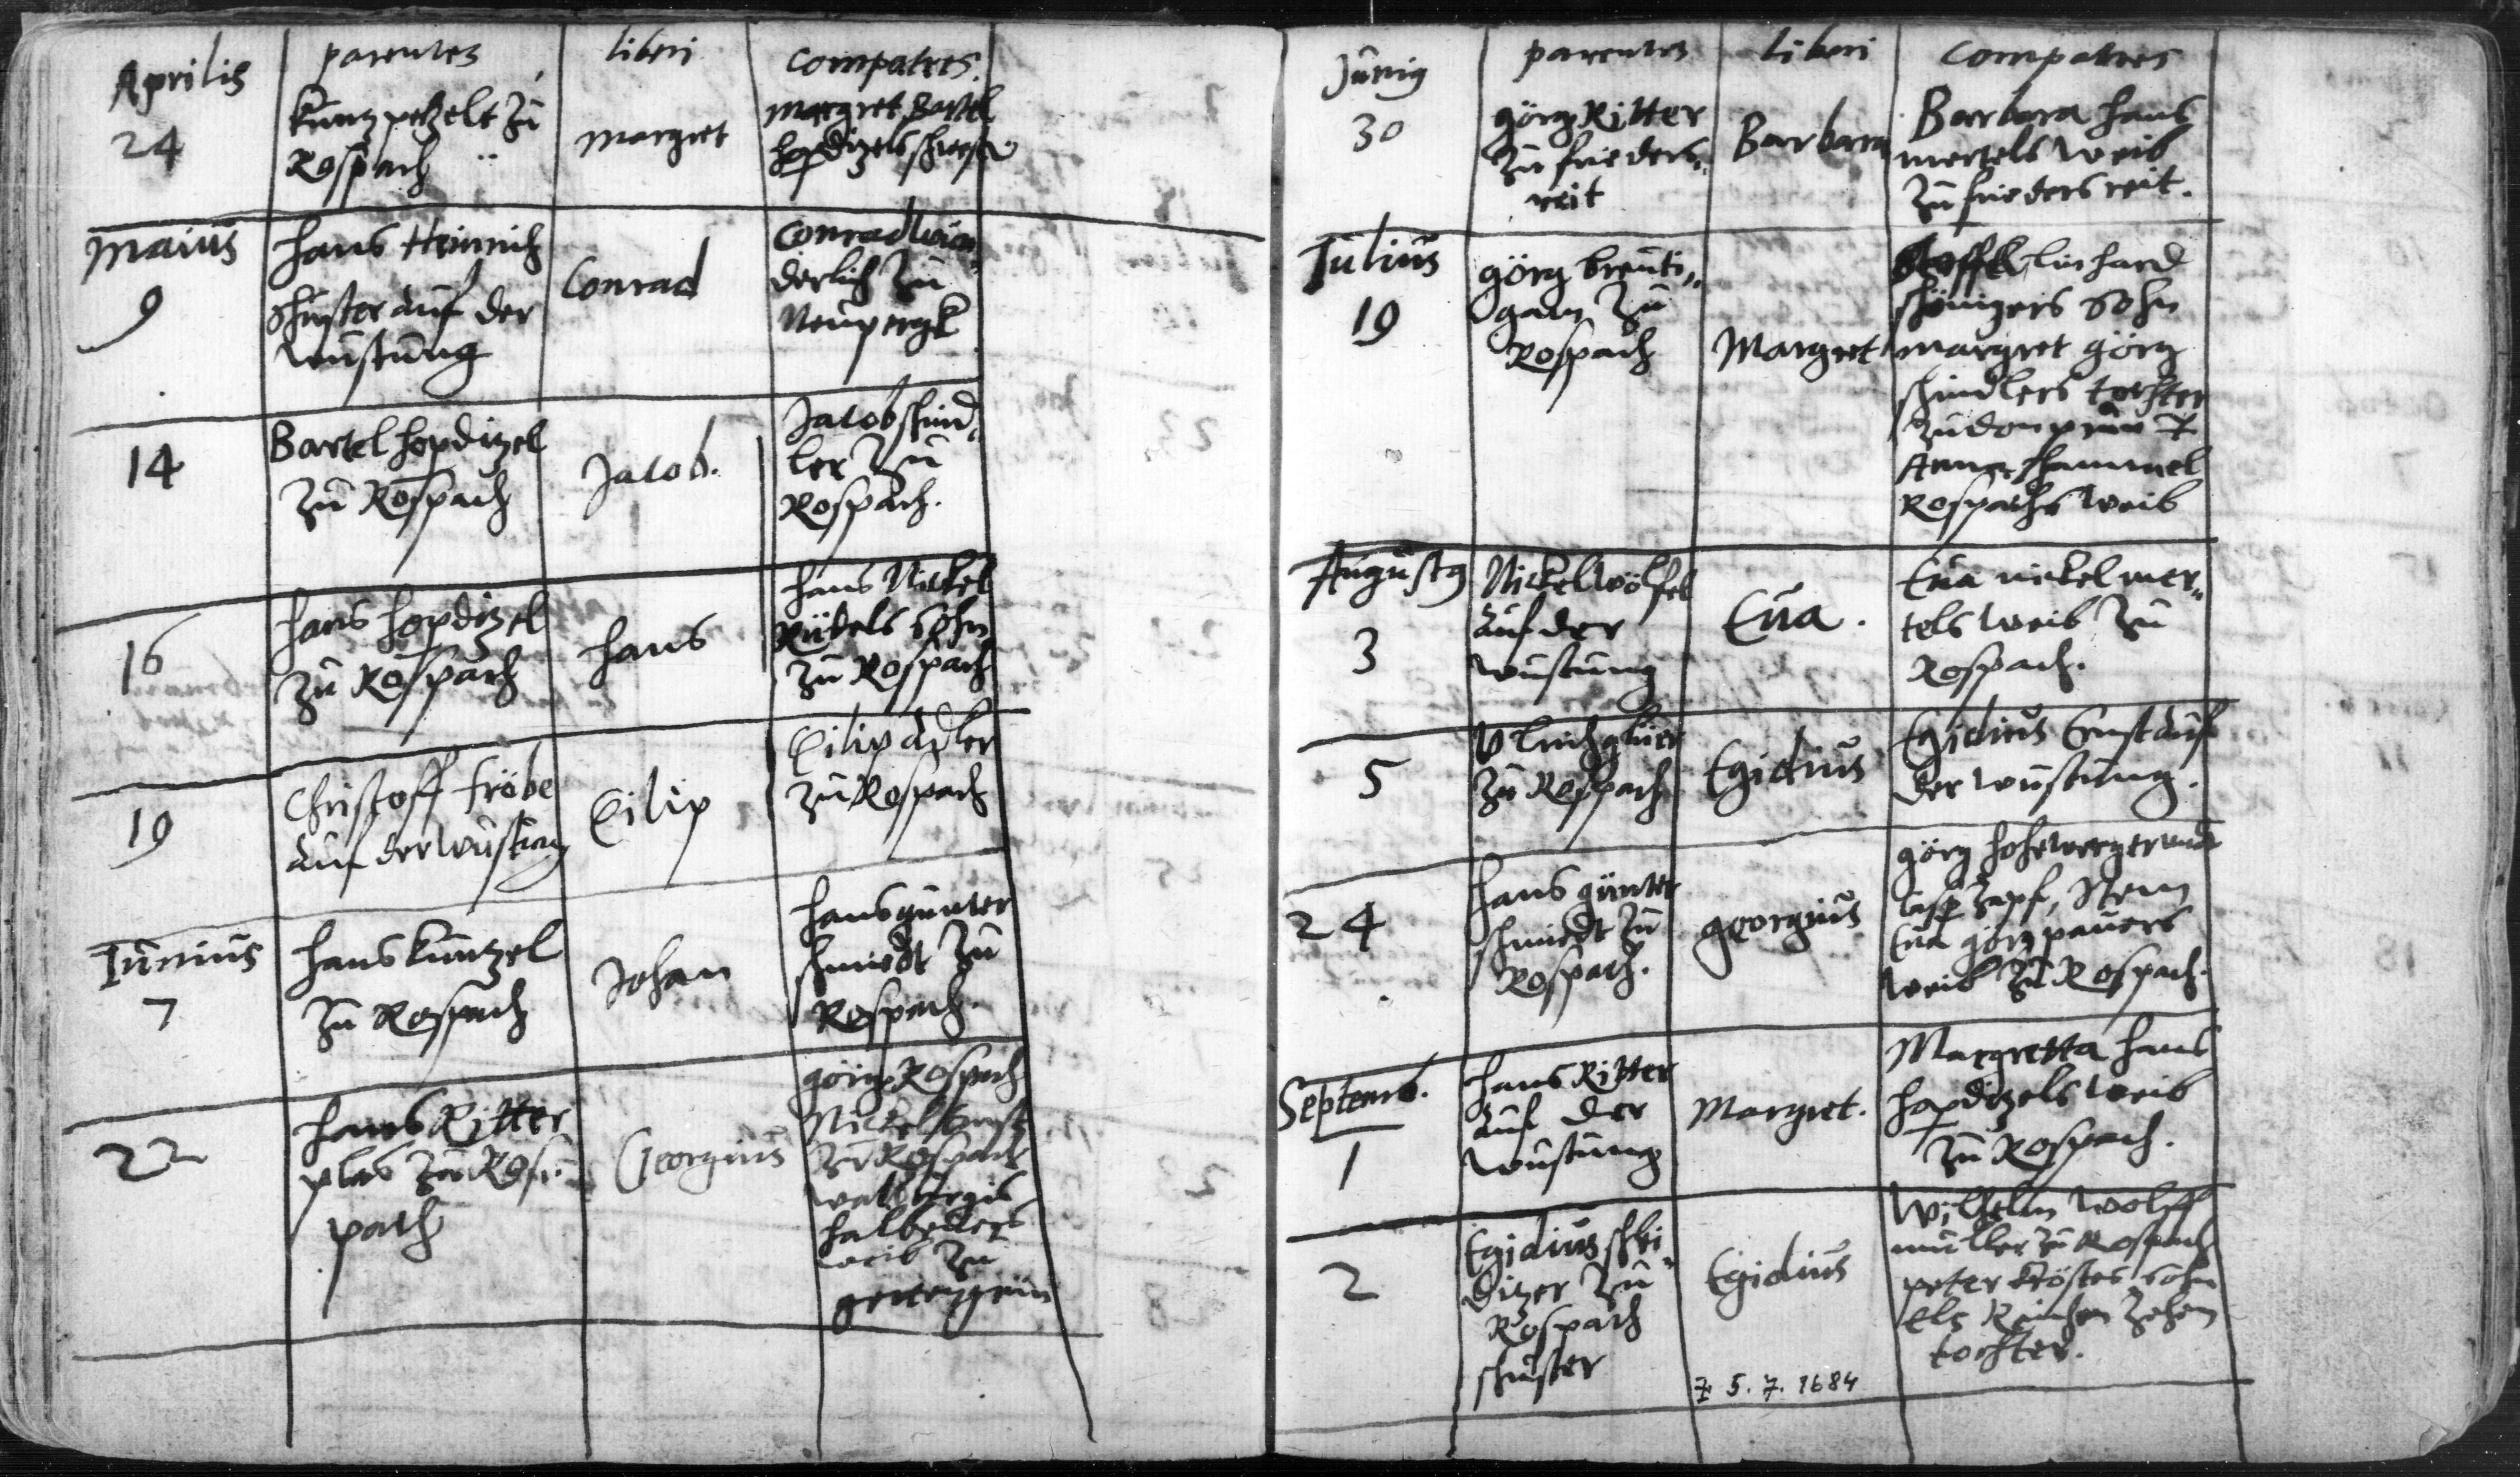 Aprilis
parentes
liberi
Compatres.
24
Kuntz petzelt zu
Rospach
margret
margret Bartel
hopdizels schwester
Maius
9
Hans Heinrich
Schuster auf der
wustung
Conrad
Conrad wun„
derlich zu
Neupergk
14
Bartel hopditzel
zu Rospach
Jacob.
Jacob schind„
ler zu
Rospach.
16
Hans hopdizel
zu Rospach
Hans
Hans Nickel
Rübels Sohn
zu Rospach
19
Christoff Fröbe
auf der wustung
Vilip
Vilip adler
zu Rospach
Junius
7
Hans Kuntzel
zu Rospach
Johan
Hans gunter
schmiedt zu
Rospach.
22
Hans Ritter
zu Ros„
pach
Georgius
görg Rospach
Nickel Ernst
zu Rospach
walburgis
weib zu
Junig
parentes
liberi
Compatres
30
görg Ritter
zu frieders„
reit
Barbara
Barbara Hans
mertels weib
zu friedersreit.
Julius
19
görg breuti„
gam zu
Rospach
Margret
Stoffel linhard
Sohn
margret görg
schindlers tochter
Anna
Rospachs weib
August9
3
Nickel wölfel
auf der
wustung
Eua.
Eua nickel mer„
tels weib zu
Rospach.
5
Vlrich
zu Rospach
Egidius
Egidius Ernst auf
der wustung.
24
Hans günter
schmiedt zu
Rospach.
georgius
görg
zapf, Item
Eua görg pauers
weib zu Rospach.
Septemb.
1
Hans Ritter
auf der
wustung
Margret.
Margretta Hans
hopdizels weib
zu Rospach.
2
Egidius
zu
Rospach
schuster
Egidius
Wilhelm Wolff
müller zu Rospach
peter Sohn
Els
tochter.
5. 7. 1684